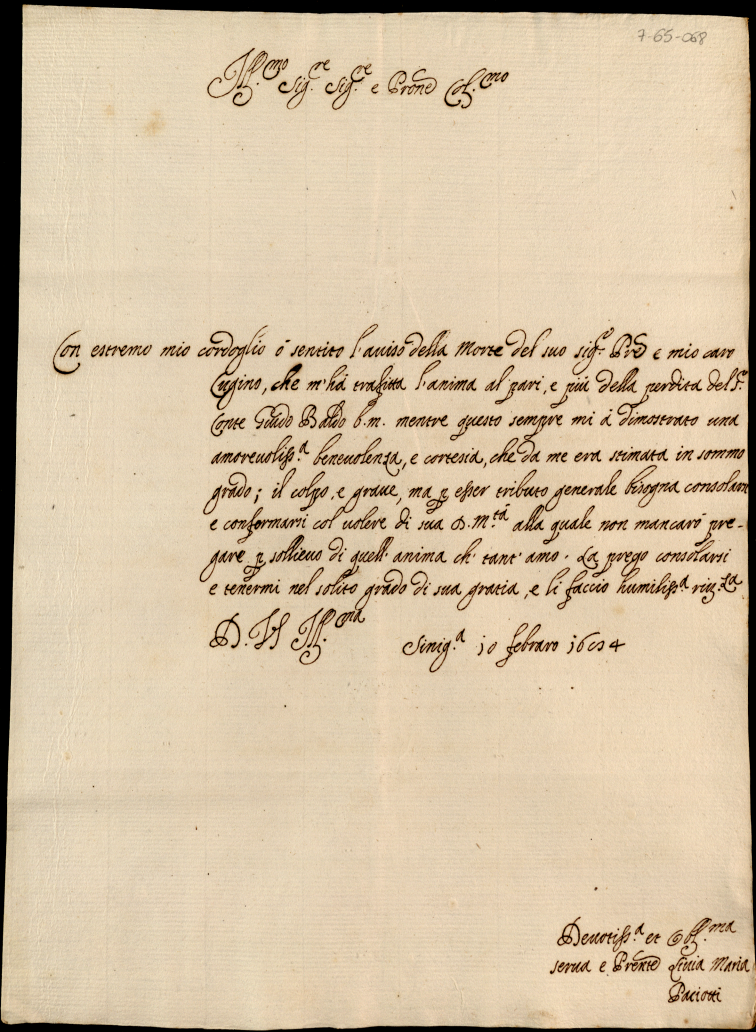 7-65-068
Ill.mo Sig.re Sig.re e Prone Col.mo
Con estremo mio cordoglio ò sentito l'auiso della Morte del suo sig.r Pre e mio caro
Cugino, che m'hà trafitta l'anima al pari, e più della perdita del S.r
Conte Guido Baldo b.m. mentre questo sempre mi á dimostrato una
amoreuoliss.a beneuolenza, e cortesia, che da me era stimata in sommo
grado; il colpo, e graue, ma p esser tributo generale bisogna consolarsi
e conformarsi col uolere di sua D.M.tà alla quale non mancarò pre-
gare p sollieuo di quell' anima ch' tant' amo. La prego consolarsi
e tenermi nel solito grado di sua gratia, e li faccio humiliss.a riu.za
D. VS Ill.ma
Sinig.a 10 febraro 16 4
Deuotiss.a et Obl.ma
serua e Prente Liuia Maria
Paciotti